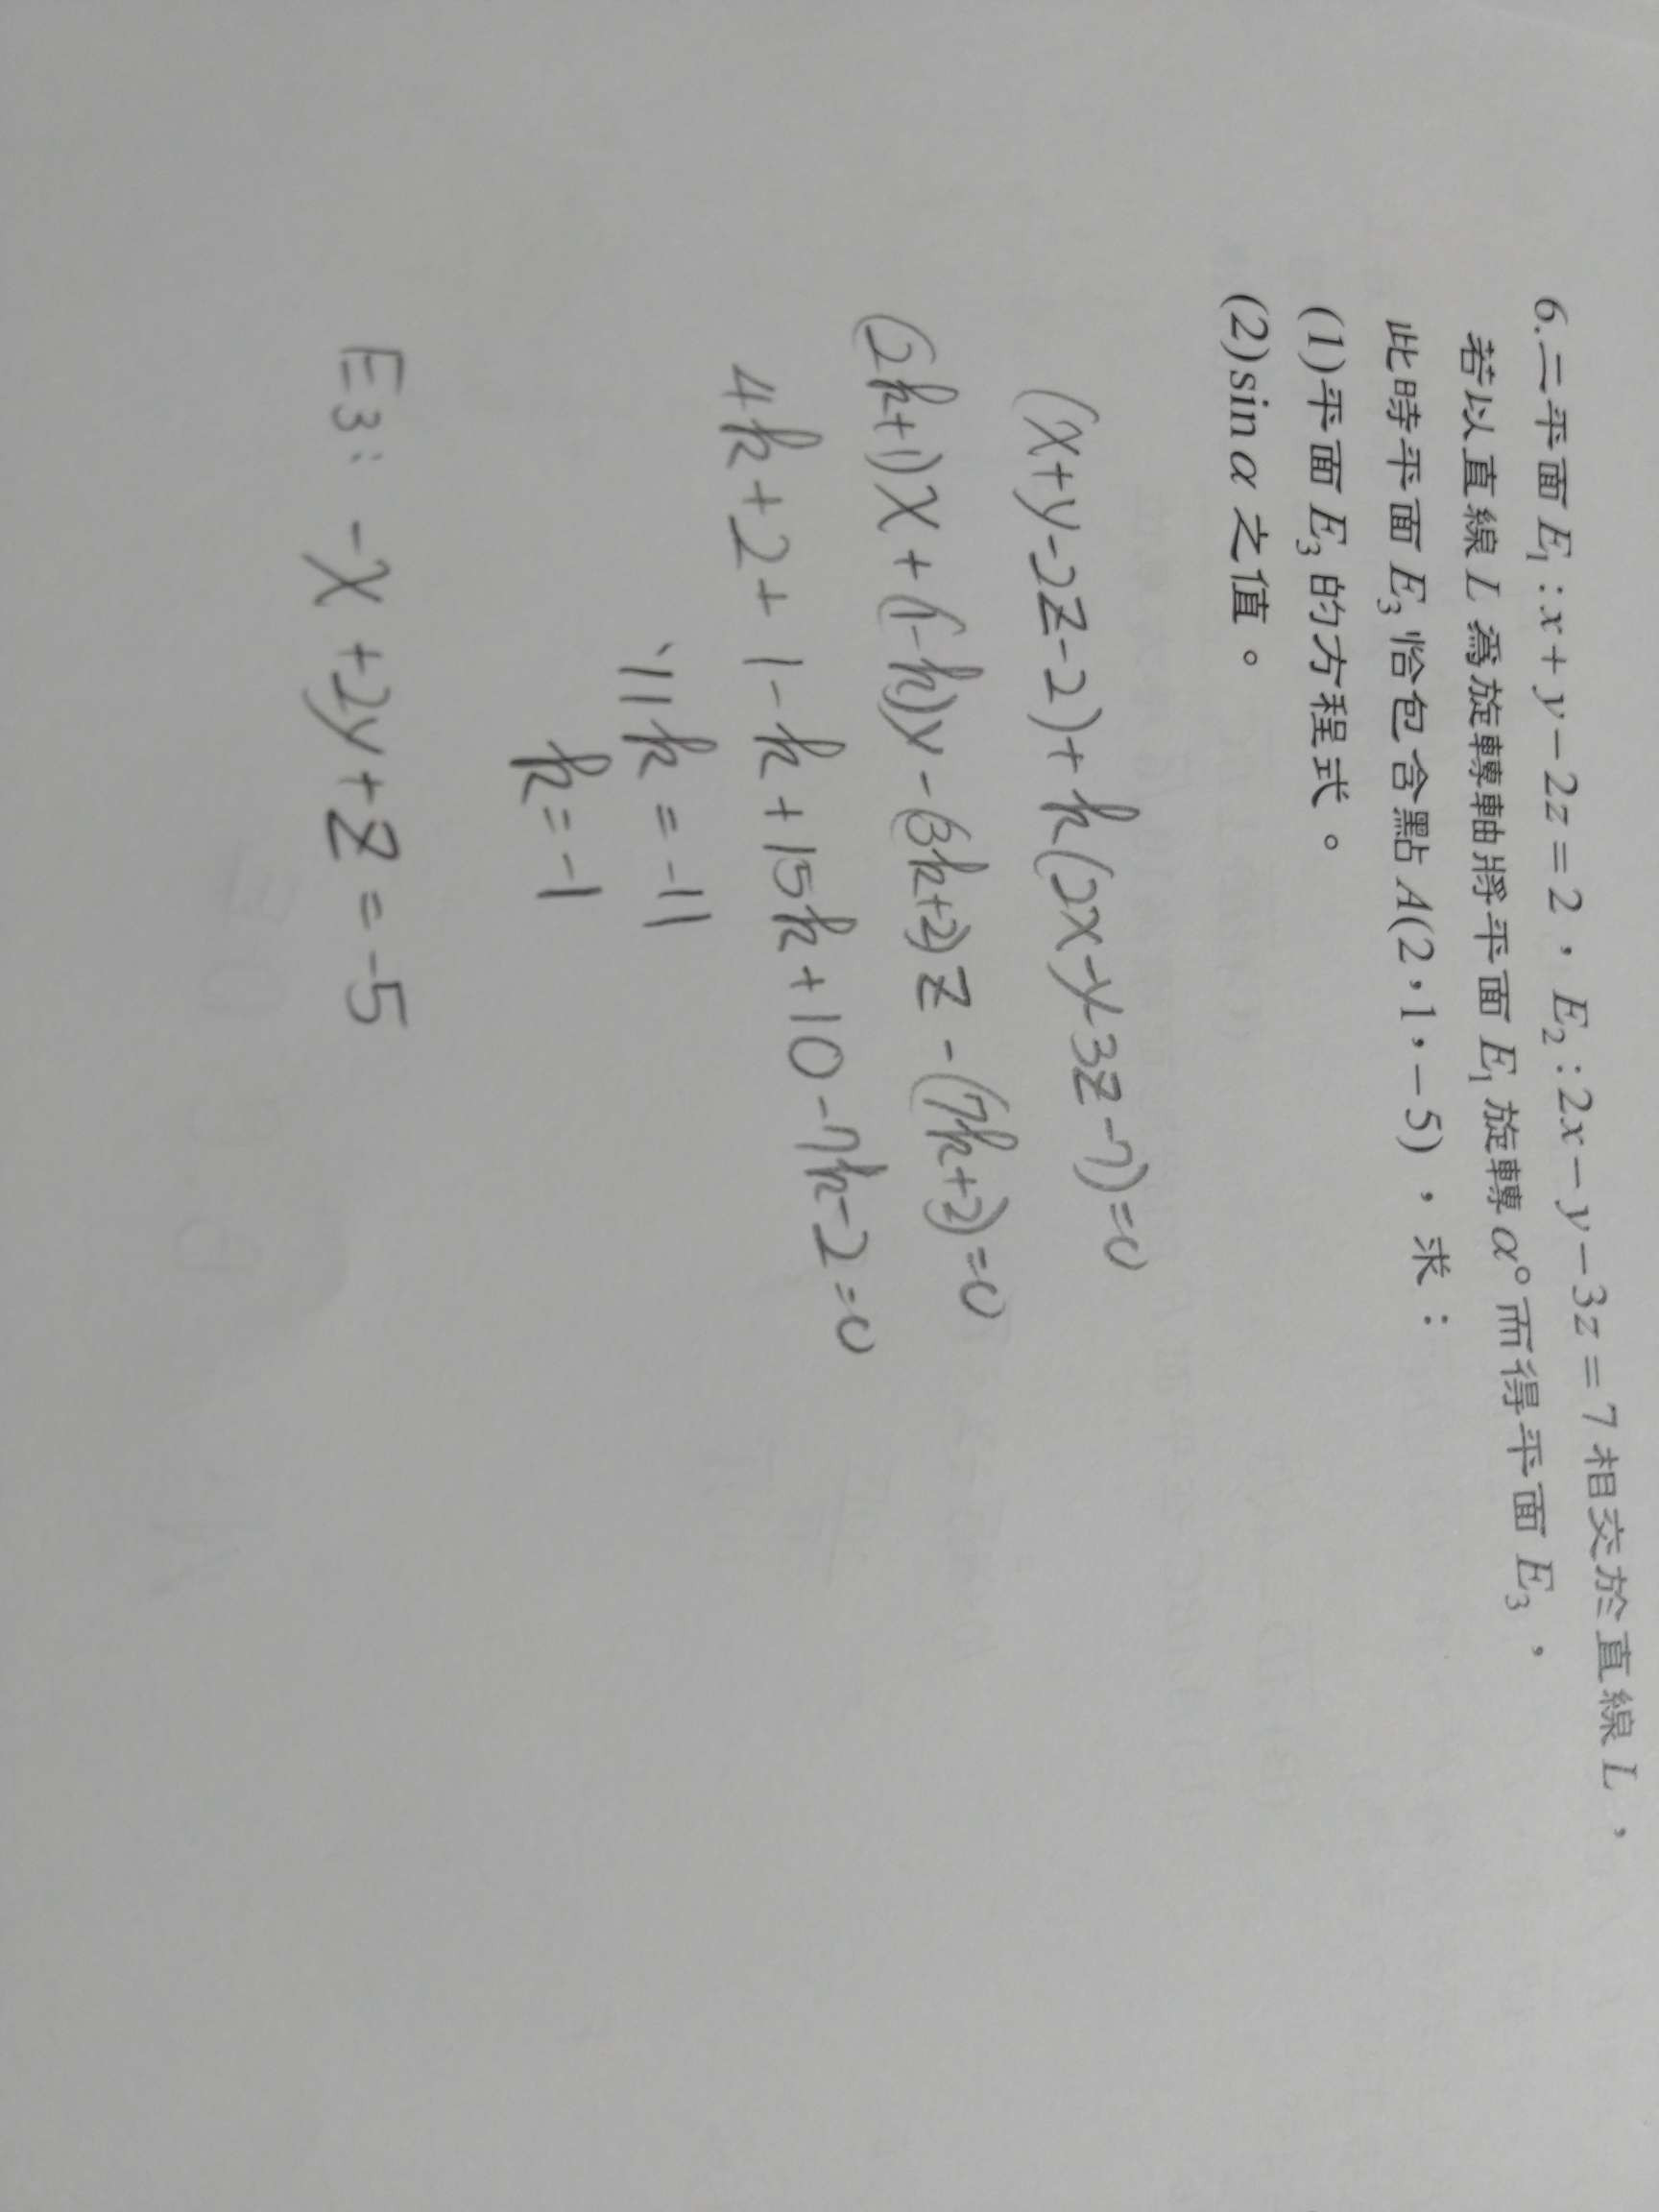 6.二平面 E₁:x+y-2z=2,E₂:2x-y-3z=7 相交於直線 L,
若以直線 L 為旋轉軸將平面 E₁ 旋轉 α° 而得平面 E₃,
此時平面 E₃ 恰包含點 A(2,1,-5),求:
(1)平面 E₃ 的方程式。
(2)sin α 之值。
(x+y-2z-2)+k(2x-y-3z-7)=0
(2k+1)x+(1-k)y-(3k+2)z-(7k+2)=0
4k+2+1-k+15k+10-7k-2=0
11k=-11
k=-1
E3: -x+2y+z=-5